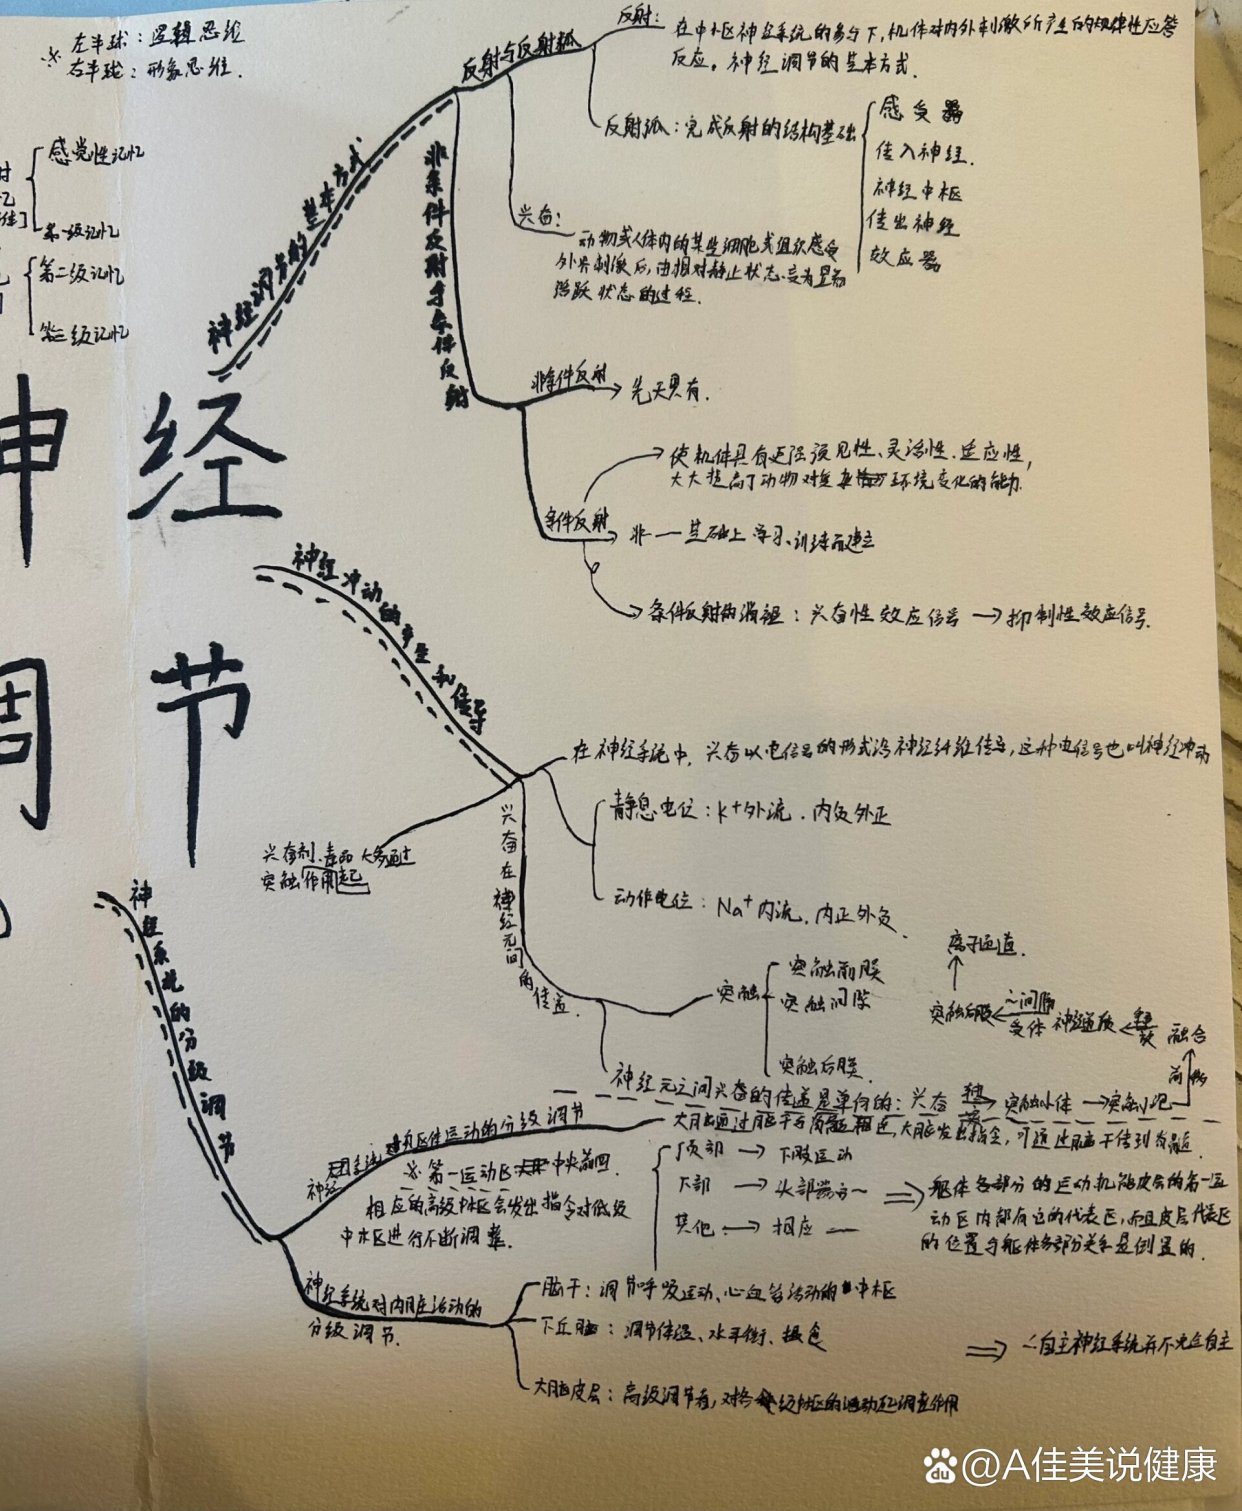 ※ 左半球：逻辑思维
右半球：形象思维.
感觉性记忆
第一级记忆
第二级记忆
第三级记忆
神经
调节
神经调节的基本方式
反射与反射弧
反射：
在中枢神经系统的参与下,机体对内外刺激所产生的规律性应答
反应。神经调节的基本方式.
反射弧：完成反射的结构基础
感受器
传入神经.
神经中枢
传出神经
效应器
兴奋：
动物或人体内的某些细胞或组织感受
外界刺激后,由相对静止状态变为显著
活跃状态的过程.
非条件反射与条件反射
非条件反射
先天具有.
条件反射
使机体具有更强预见性、灵活性、适应性,
大大提高了动物对复杂环境变化的能力.
非一基础上学习、训练而建立
条件反射的消退：兴奋性效应信号→抑制性效应信号.
神经冲动的产生和传导
在神经系统中,兴奋以电信号的形式沿神经纤维传导,这种电信号也叫神经冲动
静息电位：K+外流.内负外正
动作电位：Na+内流.内正外负.
兴奋剂、毒品大多通过
突触作用起
兴奋在神经元间的传递.
突触
突触前膜
突触间隙
突触后膜.
离子通道.
突触后膜
受体
神经递质
融合
神经元之间兴奋的传递是单向的：兴奋
突触小体→突触小泡
神经系统的分级调节
神经系统对躯体运动的分级调节
大脑通过脑干与脊髓相连,大脑发出指令,可通过脑干传到脊髓
※第一运动区 中央前回.
相应的高级中枢会发出指令对低级
中枢进行不断调整.
顶部→下肢运动
下部→头部器官一
其他→相应一
⇒躯体各部分的运动机能皮层的第一运
动区内都有它的代表区,而且皮层代表区
的位置与躯体各部分关系是倒置的.
神经系统对内脏活动的
分级调节.
脑干：调节呼吸运动、心血管活动的中枢
下丘脑：调节体温、水平衡、摄食
大脑皮层：高级调节者,对各级中枢的活动起调整作用
⇒∴自主神经系统并不完全自主
@A佳美说健康